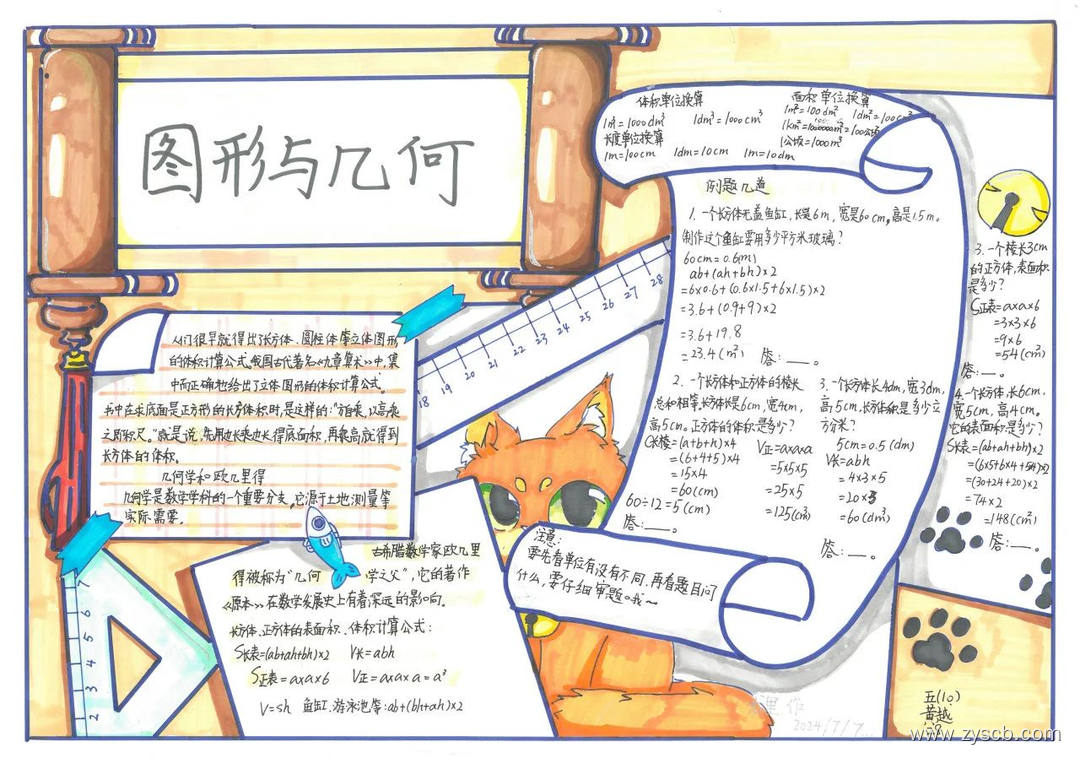 图形与几何
体积单位换算
1m³=1000dm³ 1dm³=1000cm³
长度单位换算
1m=100cm 1dm=10cm 1m=10dm
面积单位换算
1m²=100dm² 1dm²=100cm²
1km²=1000000m²=100公顷
1公顷=1000m²
人们很早就得出了长方体、圆柱体等立体图形
的体积计算公式。我国古代著名《九章算术》中,集
中而正确地给出了立体图形的体积计算公式。
书中在求底面是正方形的长方体体积时,是这样的:"方自乘,以高乘
之即积尺。"就是说,先用边长乘边长得底面积,再乘高就得到
长方体的体积。
几何学和欧几里得
几何学是数学学科的一个重要分支,它源于土地测量等
实际需要。
古希腊数学家欧几里
得被称为"几何学之父",它的著作
《原本》在数学发展史上有着深远的影响。
长方体、正方体的表面积、体积计算公式:
S长表=(ab+ah+bh)×2 V长=abh
S正表=a×a×6 V正=a×a×a=a³
V=sh 鱼缸、游泳池等:ab+(bh+ah)×2
例题几道
1.一个长方体无盖鱼缸,长是6m,宽是60cm,高是1.5m。
制作这个鱼缸要用多少平方米玻璃?
60cm=0.6(m)
ab+(ah+bh)×2
=6×0.6+(0.6×1.5+6×1.5)×2
=3.6+(0.9+9)×2
=3.6+19.8
=23.4(m²) 答:___。
2.一个长方体和正方体的棱长
总和相等,长方体长是6cm,宽4cm,
高5cm。正方体的体积是多少?
C长棱=(a+b+h)×4
=(6+4+5)×4
=15×4
=60(cm)
60÷12=5(cm)
答:___。
V正=a×a×a
=5×5×5
=25×5
=125(cm³)
3.一个长方体长4dm,宽3dm,
高5cm,长方体体积是多少立
方分米?
5cm=0.5(dm)
V长=abh
=4×3×5
=20×3
=60(dm³)
答:___。
3.一个棱长3cm
的正方体,表面积
是多少?
S正表=a×a×6
=3×3×6
=9×6
=54(cm²)
答:___。
4.一个长方体,长6cm,
宽5cm,高4cm。
它的表面积是多少?
S长表=(ab+ah+bh)×2
=(6×5+6×4+5×4)×2
=(30+24+20)×2
=74×2
=148(cm²)
答:___。
注意:
要先看单位有没有不同,再看题目问
什么,要仔细审题。哦~
18 19 20 21 22 23 24 25 26 27 28
7
6
5
4
3
2
2024/7/7
五(10)
黄越
www.zyscb.com